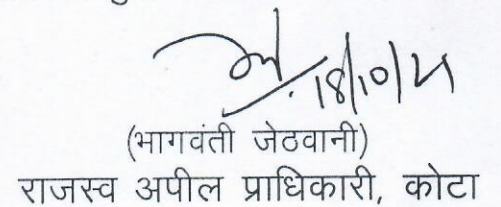 18/10/21
(भागवंती जेठवानी)
राजस्व अपील प्राधिकारी, कोटा